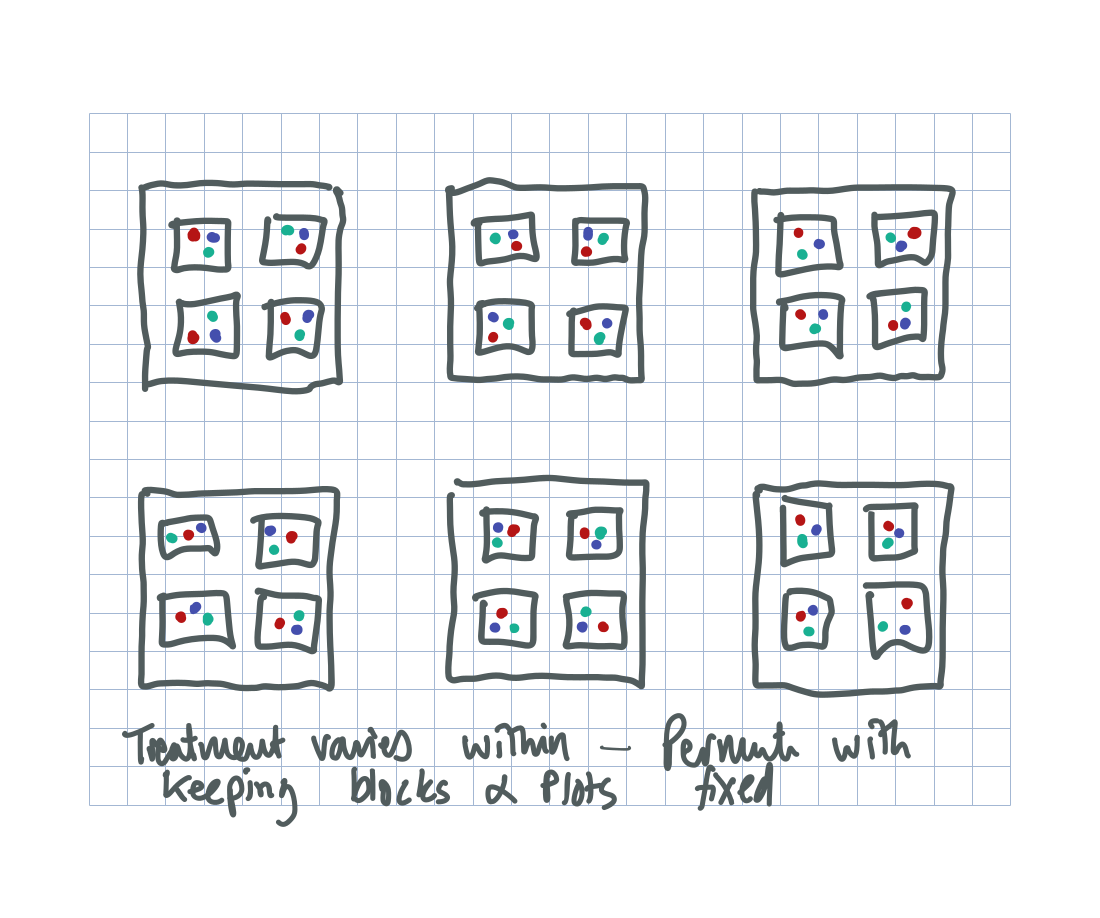 Treatment varies within — Permute with
keeping blocks & Plots fixed